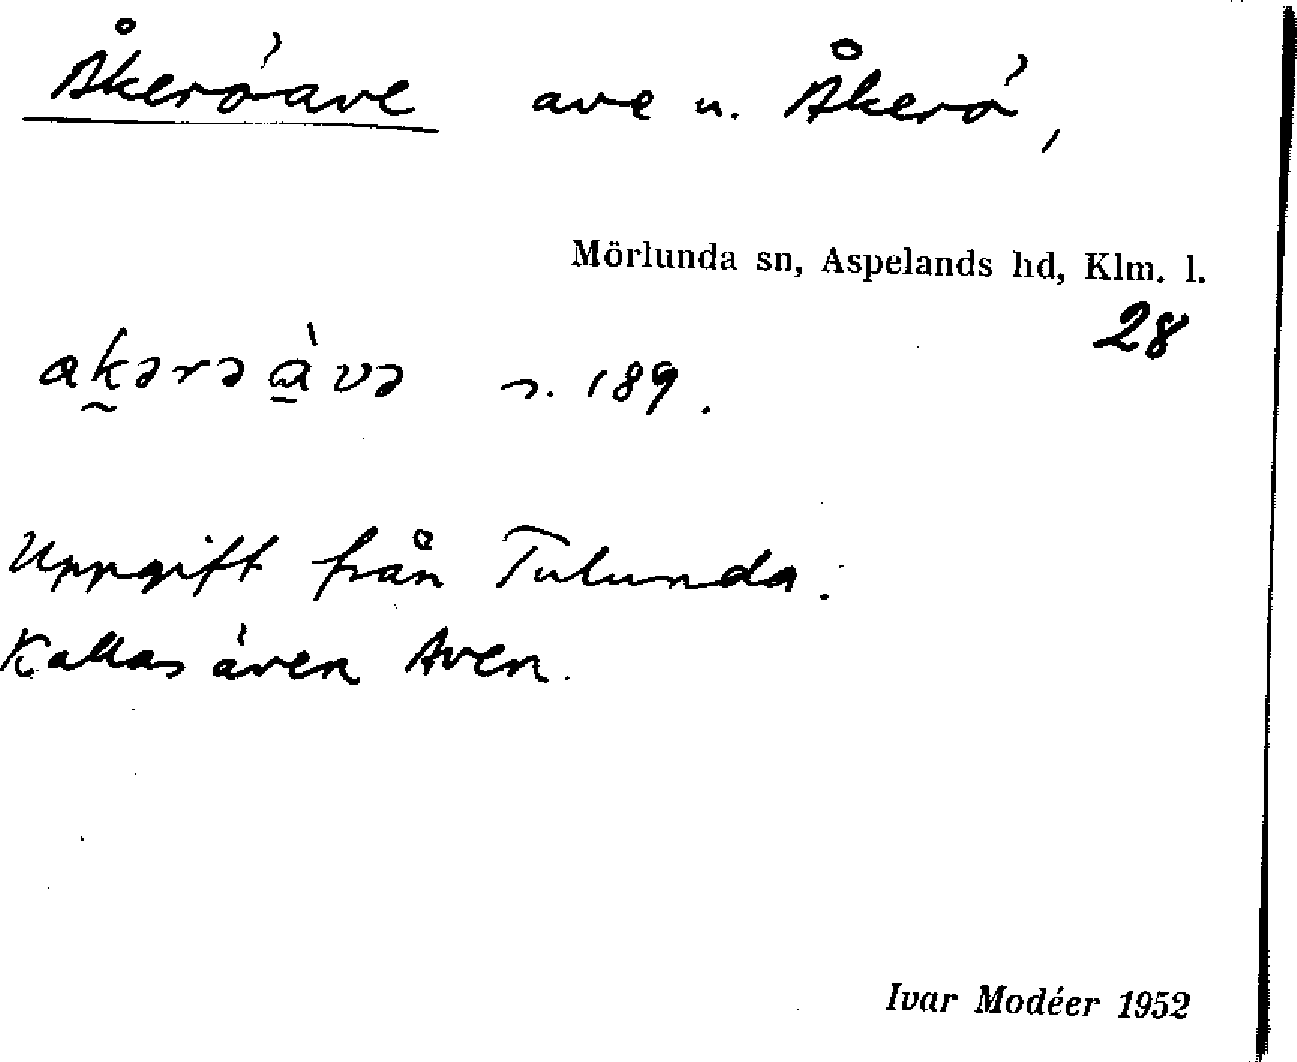 Åkeröave ave u. Åkerö,
Mörlunda sn, Aspelands hd, Klm. l.
28
ak̰ərəà̱və s. 189.
Uppgift från Tulunda.
Kallas även Aven.
Ivar Modéer 1952